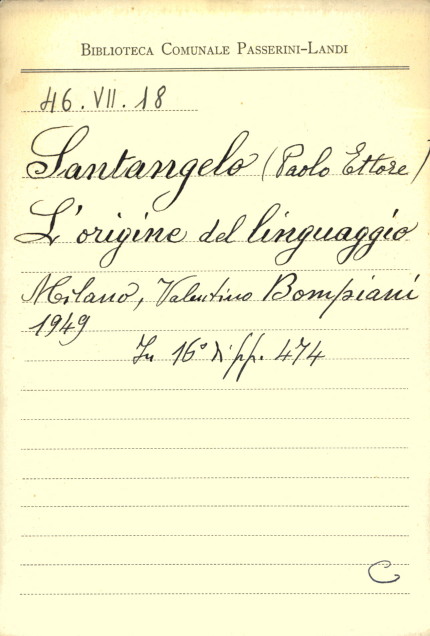 BIBLIOTECA COMUNALE PASSERINI-LANDI
46.VII.18
Santangelo (Paolo Ettore)
L'origine del linguaggio
Milano, Valentino Bompiani
1949
In 16° di pp. 474
C